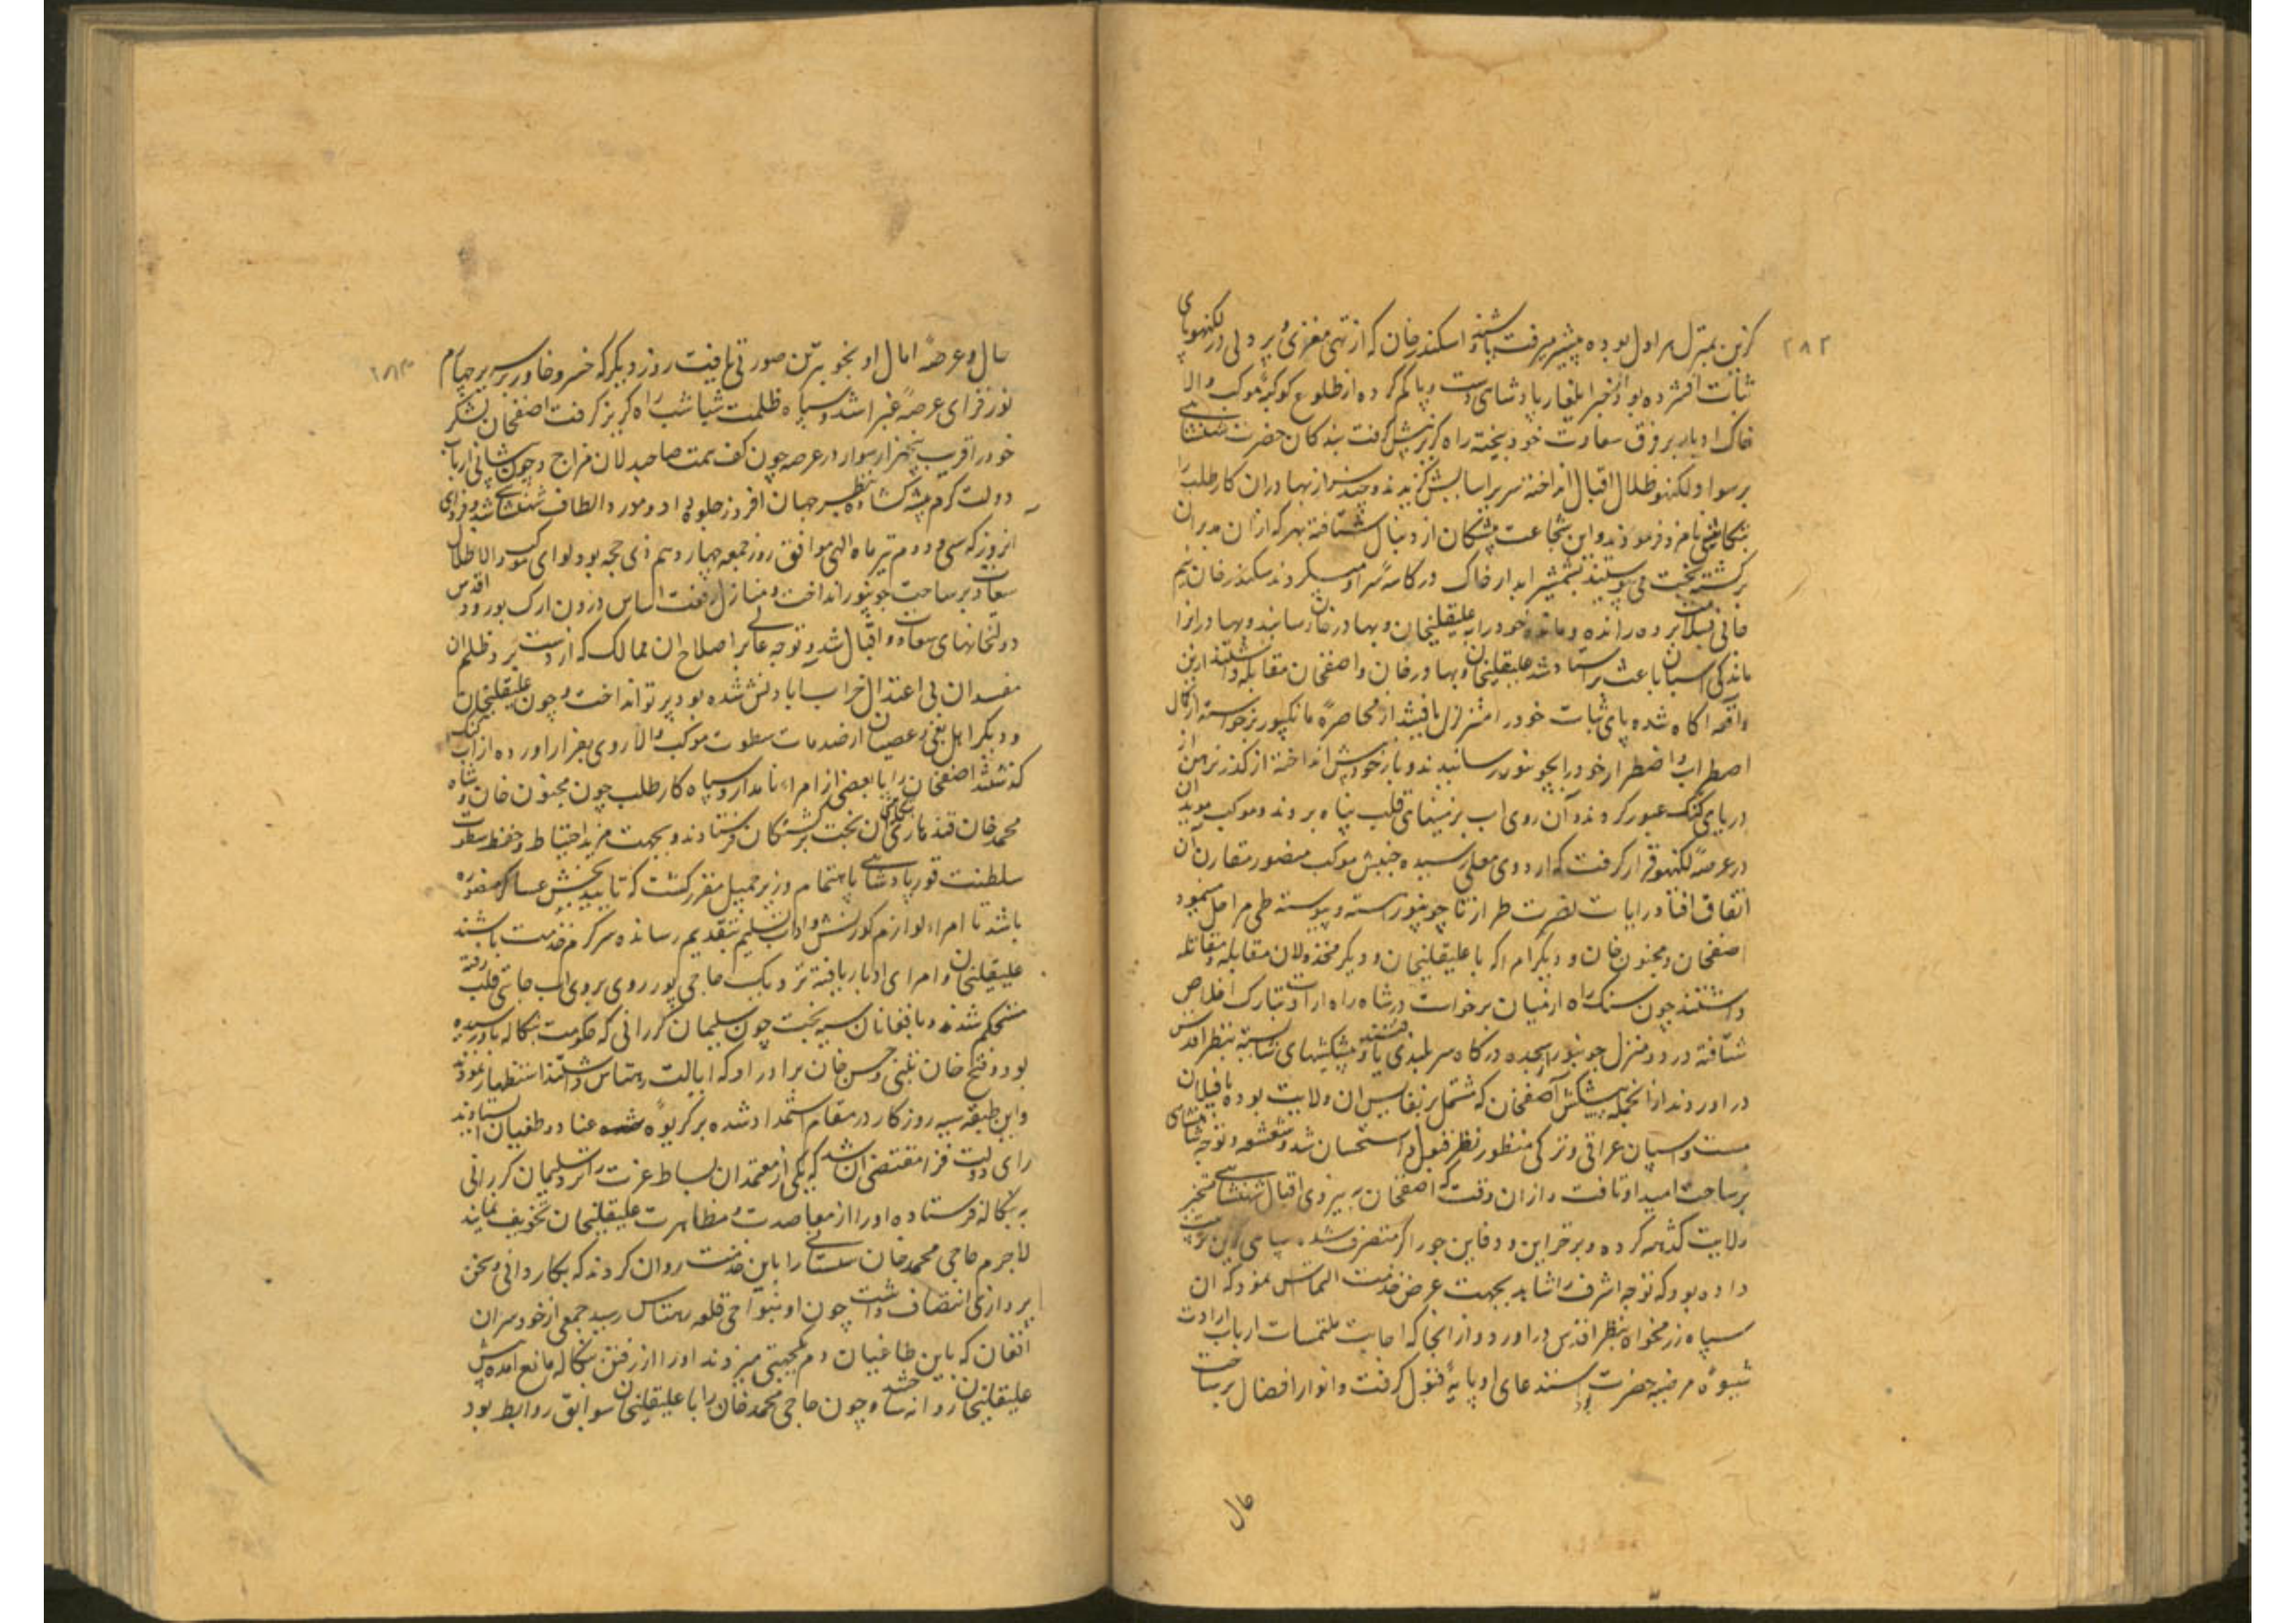 ۲۸۲
گزین بمنزل هراول بوده پیشتر میرفته باشند و اسکندرخان که از تهی مغزی و پر دلی در لکهنو پای
ثبات افشرده بود از خبر ایلغار پادشاهی دست و پا گم کرده از طلوع کوکبهٔ موکب والا
خاک ادبار بر فرق سعادت خود بیخته راه گریز پیش گرفت بندگان حضرت شهنشاهی
بر سواد لکهنو ظلال اقبال انداخته سریر آسایش گزیدند و چندی از بهادران کارطلب را
بتکامیشی نامزد فرمودند و این شجاعت پیشگان از دنبال شتافته بهر که از آن مدبران
برگشته بخت می پیوستند بشمشیر ابدار خاک در کاسهٔ سر او میکردند سکندرخان نیم
جانی بسلامت برده رانده و مانده خود را به علیقلیخان و بهادرخان رسانید و بهادر انرا
ماندگی اسپان باعث بر استاد شد علیقلیخان و بهادرخان و اصفخان مقابله داشتند ازین
واقعه آگاه شده پای ثبات خود را متزلزل یافتند از محاصرهٔ مانکپور برخواسته از کمال
اضطراب و اضطرار خود را بجونپور رسانیدند و بار خود پیش انداخته از گذر نرهن از
دریای گنگ عبور کردند و آن روی اب برنینهای قلب پناه بردند و موکب موید ان
در عرصهٔ لکهنو قرار گرفت که اردوی معلی رسیده جنبش موکب منصور مقارن آن
اتفاق افتاد و رایات نصرت طراز تا جونپور راسته و پیوسته طی مراحل مینمود
اصفخان و مجنون خان و دیگر امرا که با علیقلیخان و دیگر مخذولان مقابله و مقاتله
داشتند چون سنگ راه از میان برخواست در شاه راه ارادت بتارک اخلاص
شتافته در دو منزل جونپور بسجده درگاه سربلندی یافتند و پیشکشهای شایسته بنظر اقدس
در اوردند از انجمله پیشکش آصفخان که مشتمل بر نفایس ان ولایت بوده با فیلان
مست و اسپان عراقی و ترکی منظور نظر قبول و استحسان شد و شعشعه توجه شهنشاهی
بر ساحت امید او تافت و از ان وقت که اصفخان به نیروی اقبال شهنشاهی تسخیر
ولایت گدهه کرده و بر خزاین و دفاین چوراگر متصرف شده سپاهی گزین ترتیب
داده بود که توجه اشرف را شاید بجهت عرض خدمت التماس نمود که ان
سپاه رزمخواه بنظر اقدس در اورد و از انجا که اجابت ملتمسات ارباب ارادت
شیوهٔ مرضیه حضرت بود استدعای او پایهٔ قبول گرفت و انوار افضال بر ساحت
حال
۲۸۳
حال و عرضهٔ امال او بخوبترین صورتی تافت روز دیگر که خسرو خاور بر سریر چهارم
نورافزای عرصهٔ غبرا شد و سپاه ظلمت شباشب راه گریز گرفت اصفخان لشکر
خود را قریب پنجهزار سوار در عرصه چون کف همت صاحبدلان فراخ و چون پیشانی ارباب
دولت کرم پیشه گشاده بنظر جهان افروز جلوه داد و مورد الطاف شهنشاهی شد و فردای
انروز که سی و دوم تیر ماه الهی موافق روز جمعه چهاردهم ذی حجه بود لوای موکب والا ظلال
سعادت بر ساحت جونپور انداخت و منازل رفعت اساس درون ارک بورود اقدس
دولتخانهای سعادت و اقبال شد و توجه عالی بر اصلاح ان ممالک که از دست برد ظلم ان
مفسدان بی اعتدال خراب اباد لنش شده بود پرتو انداخت و چون علیقلیخان
و دیگر اهل بغی و عصیان از صدمات سطوت موکب والا روی بفرار اورده از آب گنگ
گذشتند اصفخان را با بعضی از امراء نامدار و سپاه کارطلب چون مجنون خان و شاه
محمدخان قندهاری بتکامشی ان بخت برگشتگان فرستادند و بجهت مزید احتیاط و حفظ سطوت
سلطنت قور پادشاهی باهتمام وزیر جمیل مقرر گشت که تایید بخش عساکر منصوره
باشد تا امراء لوازم کورنش و اداب تسلیم بتقدیم رسانده سرگرم خدمت باشند
علیقلیخان و امرای ادبار یافته نزدیک حاجی پور روی بروی اب جای قلب رفته
مستحکم شدند و بافغانان سیه بخت چون سلیمان کررانی که حکومت بنگاله باو رسیده
بود و فتح خان بتنی و حسن خان برادر او که ایالت رهتاس داشتند استظهار نمودند
و این طبقه سیه روزگار در مقام استمداد شده بر گریوه عناد و طغیان ایستادند
رای دولت فزا مقتضی ان شد که یکی از معتمدان بساط عزت را نزد سلیمان کررانی
به بنگاله فرستاده او را از معاضدت و مظاهرت علیقلیخان تخویف نمایند
لاجرم حاجی محمدخان سیستانی را باین خدمت روان کردند که بکاردانی و سخن
پردازی اتصاف داشت چون او بنواحی قلعه رهتاس رسید جمعی از خودسران
افغان که باین طاغیان دم یکجهتی میزدند او را از رفتن بنگاله مانع امده پیش
علیقلیخان روانه ساختند و چون حاجی محمدخان را با علیقلیخان سوابق روابط بود